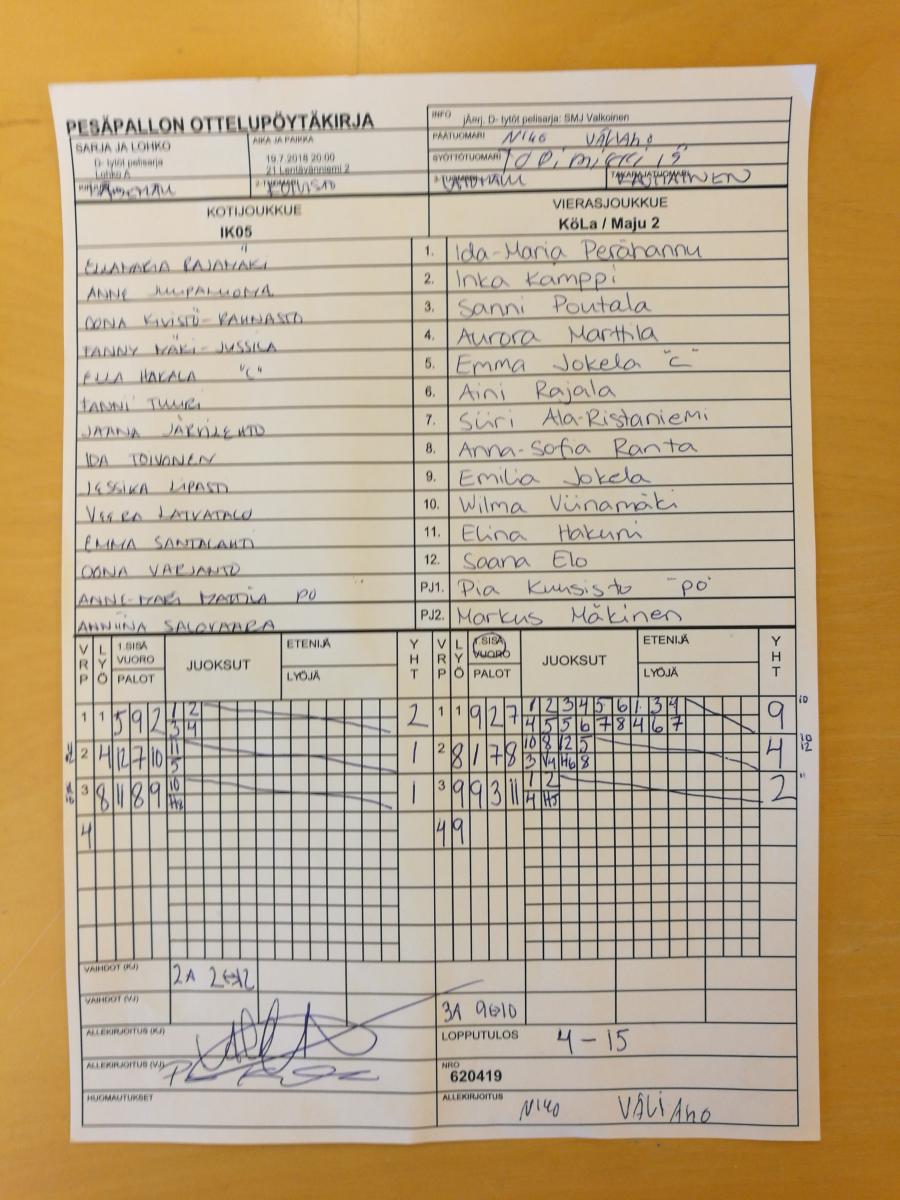 PESÄPALLON OTTELUPÖYTÄKIRJA
INFO jÄerj. D- tytöt pelisarja: SMJ Valkoinen
SARJA JA LOHKO
D- tytöt pelisarja
Lohko A
AIKA JA PAIKKA
19.7.2018 20.00
21 Lentävänniemi 2
PÄÄTUOMARI NIKO VÄLIAHO
SYÖTTÖTUOMARI
KOTIJOUKKUE
IK05
VIERASJOUKKUE
KöLa / Maju 2
ELLAMARIA RAJAMÄKI 1. Ida-Maria Perähannu
ANNE JUUPALUOMA 2. Inka Kamppi
OONA KIVISTÖ-RAHNASTO 3. Sanni Poutala
FANNY MÄKI-JUSSILA 4. Aurora Marttila
ELLA HAKALA "C" 5. Emma Jokela "C"
FANNI TUURI 6. Aini Rajala
JAANA JÄRVILEHTO 7. Siiri Ala-Ristaniemi
IDA TOIVONEN 8. Anna-Sofia Ranta
JESSIKA LIPASTI 9. Emilia Jokela
VEERA LATVATALO 10. Wilma Viinamäki
EMMA SANTALAHTI 11. Elina Hakuni
OONA VARJANTO 12. Saana Elo
ANNE-MARI MATTILA PO PJ1. Pia Kuusisto "PO"
ANNIINA SALOVAARA PJ2. Markus Mäkinen
VRP LYÖ 1.SISÄ VUORO PALOT JUOKSUT ETENIJÄ LYÖJÄ YHT VRP LYÖ 1.SISÄ VUORO PALOT JUOKSUT ETENIJÄ LYÖJÄ YHT
1 1 5 9 2 1 2 2 1 1 9 2 7 1 2 3 4 5 6 1 3 4 9
3 4 4 5 5 6 7 8 4 6 7
2 4 12 7 10 11 1 2 8 1 7 8 10 8 12 5 4
5 3 V4 H6 8
3 8 11 8 9 10 1 3 9 9 3 11 1 2 2
H8 4 H5
4 4 9
VAIHDOT (KJ) 2A 2↔12
VAIHDOT (VJ) 3A 9↔10
ALLEKIRJOITUS (KJ)
LOPPUTULOS 4-15
ALLEKIRJOITUS (VJ)
NRO
620419
HUOMAUTUKSET
ALLEKIRJOITUS NIKO VÄLIAHO